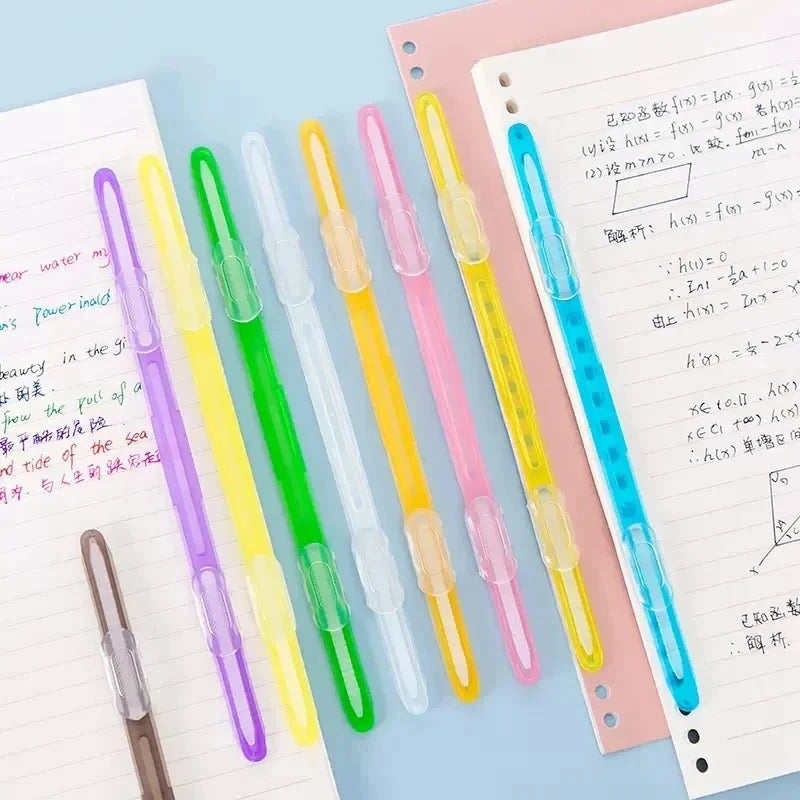 near water my
n's Powerinald
beauty in the gi
朴的美.
from the pull of a
平静的危险.
nd tide of the sea
与人生的
已知函数 f(x) = lnx . g(x) = ½
(1) 设 h(x) = f(x) - g(x) 若 h(x) =
(2) 设 m>n>0 . 比较. f(m) - f(n) / m-n
解析: h(x) = f(x) - g(x) =
∵ h(1) = 0
∴ ln1 - ½a + 1 = 0
由上 h(x) = lnx - x
h'(x) = 1/x - 2x+
x∈(0.1) . h(x)
x∈(1 +∞) h(x)
∴ h(x) 单增区间
已知函数
∴ 解析.